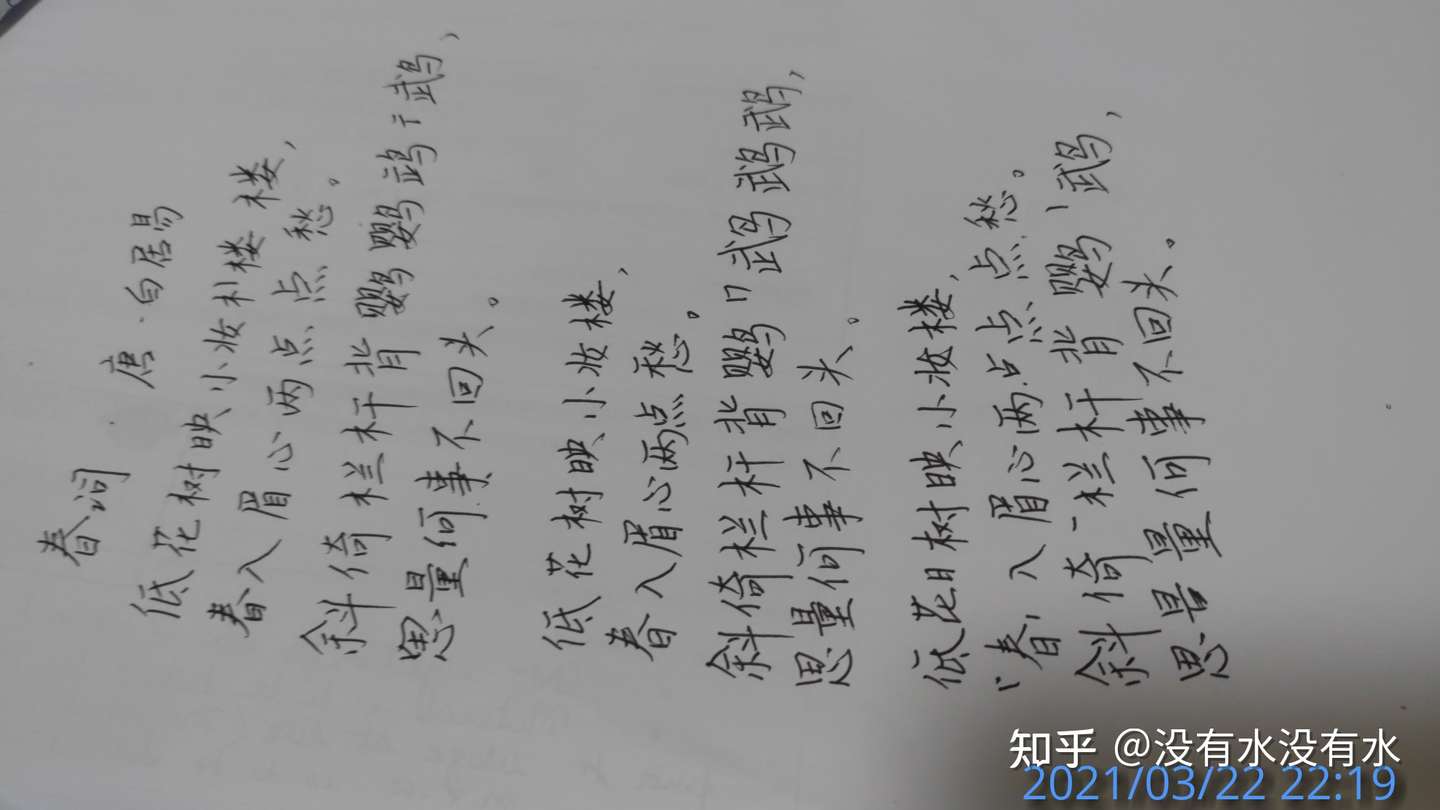 春词
唐·白居易
低花树映小妆朴楼楼,
春入眉心两点点点愁。
斜倚栏杆背鹦鹦鹉鹉,
思量何事不回头。
低花树映小妆楼,
春入眉心两点愁。
斜倚栏杆背鹦鹉鹉鹉,
思量何事不回头。
低花日树映小妆楼,
春入眉心两占点点愁。
斜倚栏杆背鹦鹉,
思量量何事不回头。
知乎 @没有水没有水
2021/03/22 22:19